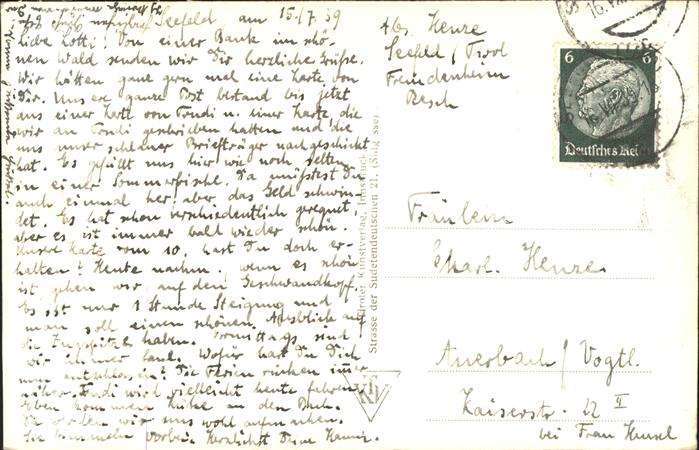 Seefeld am 15./7. 39
liebe Lotti! Von einer Bank im schö-
nen Wald senden wir Dir herzliche Grüße.
Wir hätten ganz gern mal eine Karte von
Dir. Unsere ganze Post bestand bis jetzt
aus einer Karte von Trudi u. einer Karte, die
wir an Trudi geschrieben hatten und die
uns unser schlauer Briefträger nachgeschickt
hat. Es gefällt uns hier wie noch selten
in einer Sommerfrische. Da müßtest Du
auch einmal her, aber das Geld schwin-
det. Es hat schon verschiedentlich geregnet,
aber es ist immer bald wieder schön.
Unsere Karte vom 10. hast Du doch er-
halten? Heute nachm. wenn es schön
ist gehen wir auf den Geschwandkopf.
Es ist nur 1 Stunde Steigung und
man soll einen schönen Ausblick auf
die Zugspitze haben. Vormittags sind
wir immer faul. Wofür hast Du Dich
nun entschlossen? Die Ferien rücken immer
näher. Trudi wird vielleicht heute fahren.
Eben kommen Kühe an den Bach.
Da werden wir uns wohl aufmachen.
Sie bimmeln vorbei. Herzlichst Deine
Abs. Henze
Seefeld / Tirol
Freudenheim
Tiroler Kunstverlag, Innsbruck
Strasse der Sudetendeutschen 21.
6 6
Deutsches Reich
Fräulein
Charl. Henze
Auerbach / Vogtl.
Kaiserstr. 22 II
bei Frau Hensel